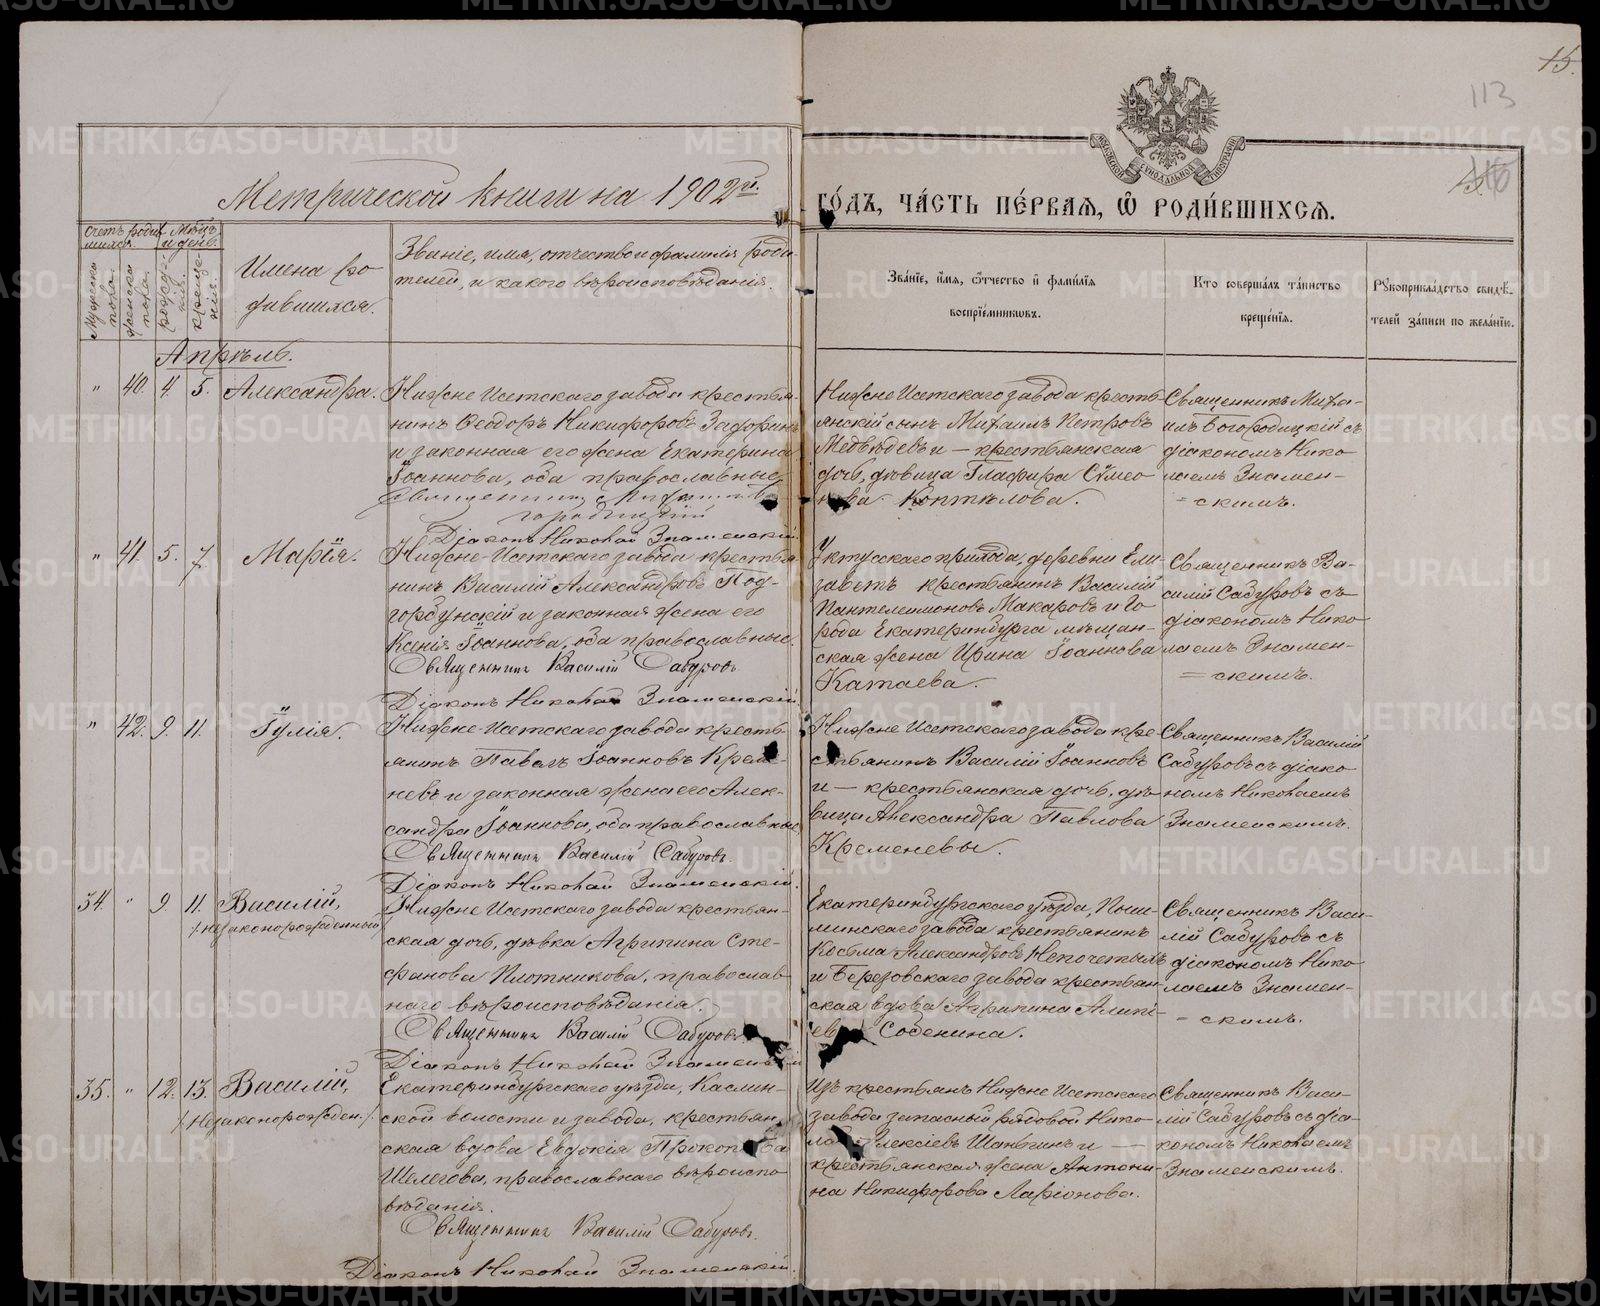 15.
113
Метрической книги на 1902й.
го́дъ, ча́сть пе́рвая, ѡ҆ роди́вшихсѧ.
Счетъ родив-
шихся.
Мѣсяцъ
и день.
Мужеска
пола.
Женска
пола.
рожде-
нія.
креще-
нія.
Имена ро
дившихся.
Званіе, имя, отчество и фамилія роди-
телей, и какого вѣроисповѣданія.
Зва́нїе, и҆́мѧ, ѻ҆́тчество и҆ фами́лїѧ
воспрїе́мникѡвъ.
Кто̀ соверша́лъ та́инство
креще́нїѧ.
Рꙋкоприкла́дство свидѣ́-
телей за́писи по жела́нїю.
Апрѣль.
" 40. 4. 5. Александра.
Нижне Исетскаго завода крестья-
нинъ Ѳеодоръ Никифоровъ
и законная его жена Екатерина
Іоаннова, оба православные
Священникъ Михаилъ Бо
городицкій
Діаконъ Николай Знаменскій.
Нижне Исетскаго завода кресть-
янскій сынъ Михаилъ Петровъ
Медвѣдевъ и — крестьянская
дочь, дѣвица Глафира Симео
нова Коптѣлова.
Священникъ Миха-
илъ Богородицкій съ
діакономъ Нико
лаемъ Знамен-
= скимъ.
" 41. 5. 7. Марія.
Нижне-Исетскаго завода крестья
нинъ Василій Александровъ Под-
горбунскій и законная жена его
Ксенія Іоаннова, оба православные.
Священникъ Василій Сабуровъ
Діаконъ Николай Знаменскій
Уктусскаго прихода, деревни Ели
заветъ крестьянинъ Василій
Пантелеимоновъ Макаровъ и го
рода Екатеринбурга мѣщан-
ская жена Ирина Іоаннова
Катаева.
Священникъ Ва-
силій Сабуровъ съ
діакономъ Нико
лаемъ Знамен-
= скимъ.
" 42. 9. 11. Іулія.
Нижне-Исетскаго завода кресть
янинъ Павелъ Іоанновъ Креме-
невъ и законная жена его Алек-
сандра Іоаннова, оба православные
Священникъ Василій Сабуровъ.
Діаконъ Николай Знаменскій.
Нижне Исетскаго завода кре-
стьянинъ Василій Іоанновъ
и — крестьянская дочь, дѣ-
вица Александра Павлова
Кременевы.
Священникъ Василій
Сабуровъ съ діако
номъ Николаемъ
Знаменскимъ.
34. " 9. 11. Василій,
/незаконорожденный/
Нижне Исетскаго завода крестьян-
ская дочь, дѣвка Агрипина Сте-
фанова Плотникова, православ
наго вѣроисповѣданія.
Священникъ Василій Сабуровъ.
Діаконъ Николай Знаменскій
Екатеринбургскаго уѣзда, Пыш-
минскаго завода крестьянинъ
Косьма Александровъ
и Березовскаго завода крестьян
ская вдова Агрипина
Собенина.
Священникъ Васи-
лій Сабуровъ съ
діакономъ Нико
лаемъ Знамен-
= скимъ.
35. " 12. 13. Василій,
/Незаконорожден./
Екатеринбургскаго уѣзда, Каслин-
ской волости и завода, крестьян
ская вдова Евдокія Прокопьева
Шелегова, православнаго вѣроиспо-
вѣданія.
Священникъ Василій Сабуровъ.
Діаконъ Николай Знаменскій.
Изъ крестьянъ Нижне Исетскаго
завода запасный рядовой Нико-
лай Алексіевъ Шаньгинъ и —
крестьянская жена Антони-
на Никифорова Ларіонова.
Священникъ Васи-
лій Сабуровъ съ діа-
кономъ Николаемъ
Знаменскимъ.